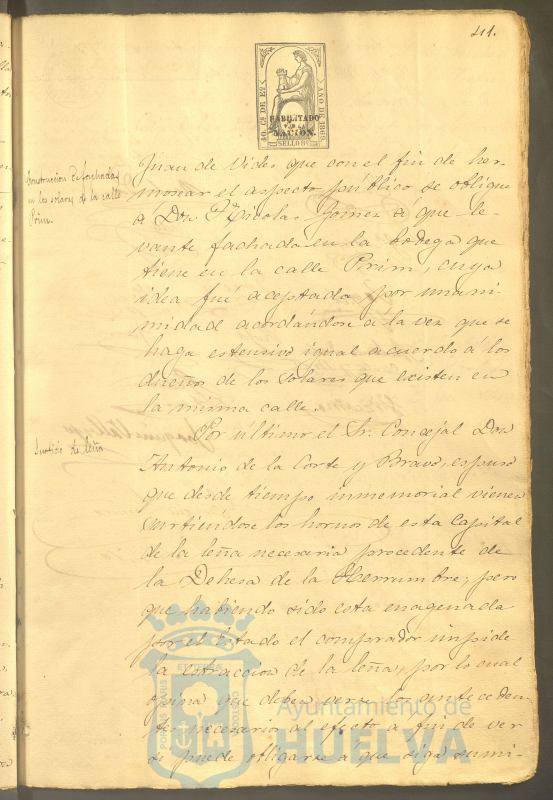 41.
50. Cs. DE Eo.
AÑO DE 1869.
HABILITADO
POR LA
NACION.
SELLO 8º
Construccion de fachadas
en los solares de la calle
Prim.
Juan de Vides que con el fin de her-
mosear el aspecto público se obligue
a Don Nicolas Gomez á que le-
vante fachada en la bodega que
tiene en la calle Prim, cuya
idea fué aceptada por unani-
midad acordándose a la vez que se
haga estensivo igual acuerdo á los
dueños de los solares que existen en
la misma calle.
Surtido de leña
Por último el Sr. Concejal Don
Antonio de la Corte y Bravo, espuso
que desde tiempo inmemorial vienen
surtiéndose los hornos de esta Capital
de la leña necesaria procedente de
la Dehesa de la Herrumbre, pero
que habiendo sido esta enagenada
por el Estado el comprador impide
la estraccion de la leña, por lo cual
opina que deben verse los anteceden-
tes necesarios al efecto a fin de ver
si puede obligarse á que siga sumi-
Ayuntamiento de
HUELVA
PORTUS MARIS
ET TERRAE
CUSTODIA